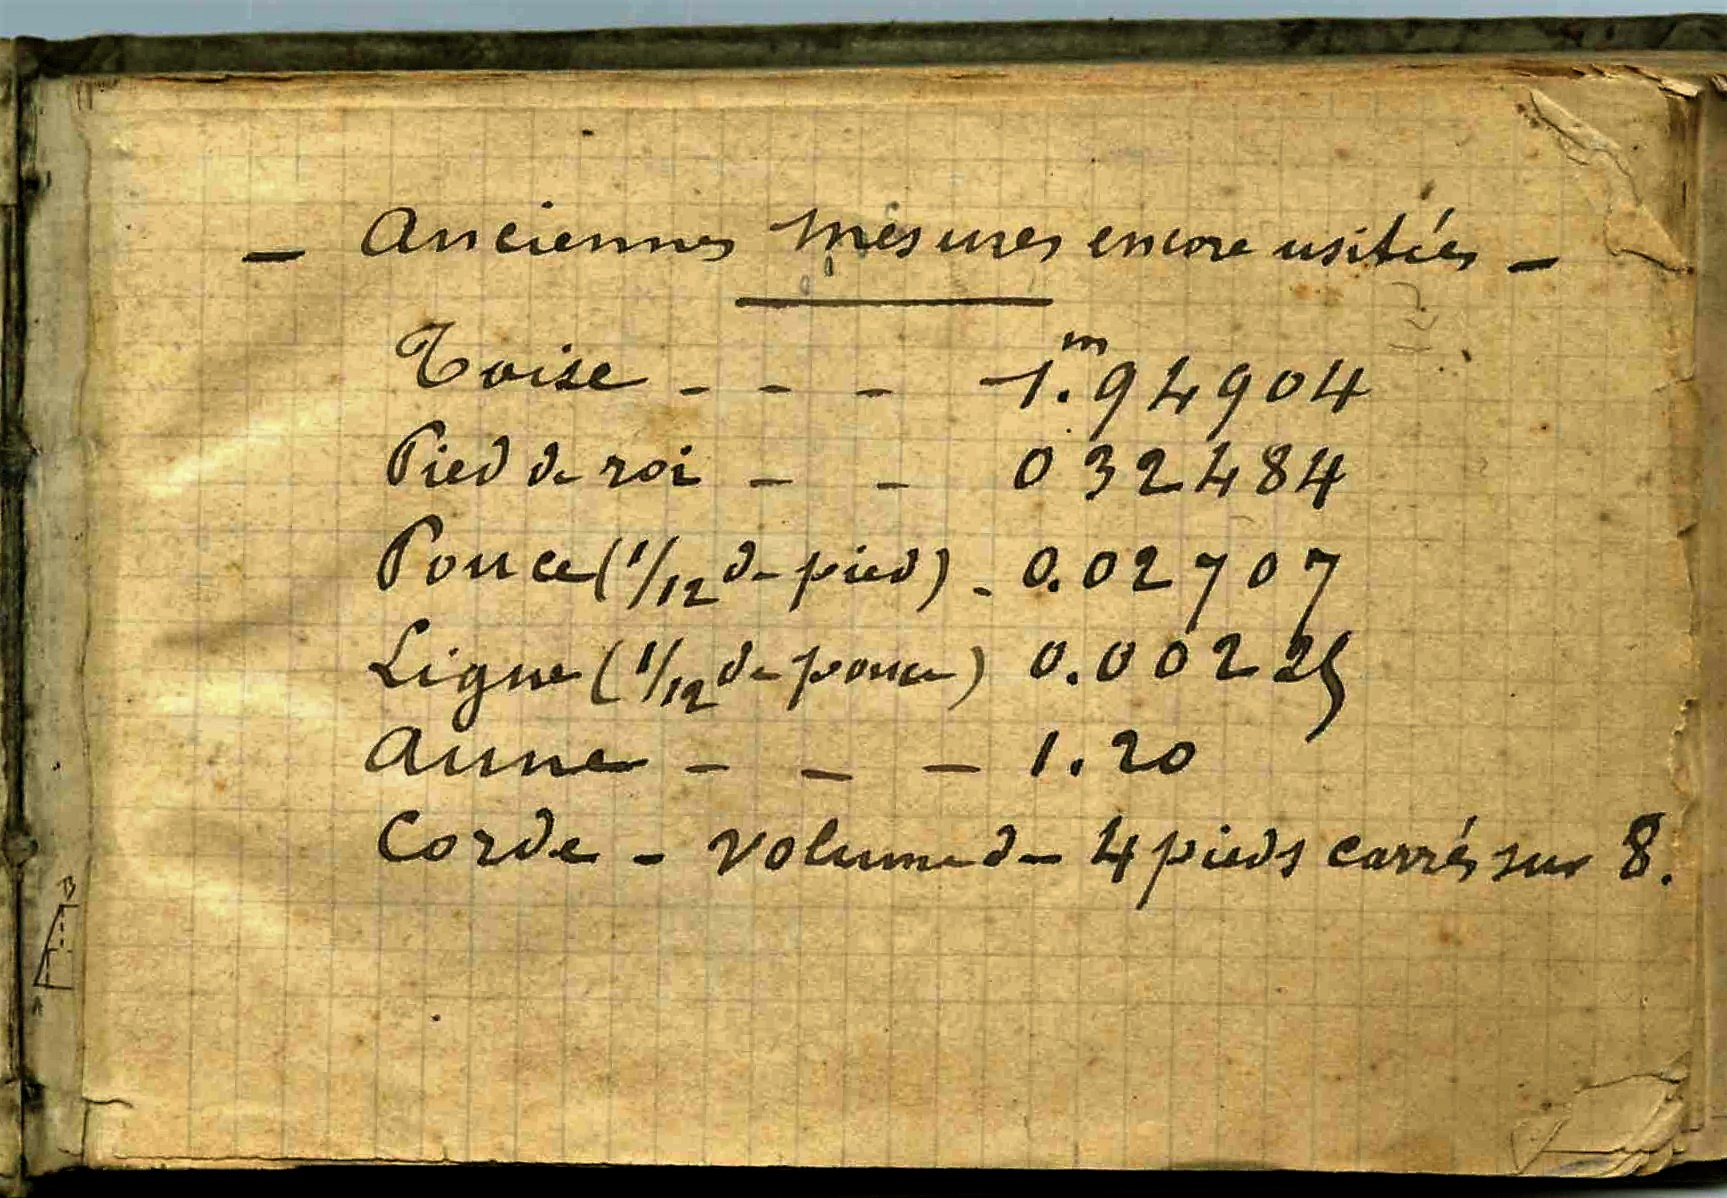 — Anciennes mesures encore usitées —
Toise - - - 1.ᵐ94904
Pied de roi - - 0 32484
Pouce (1/12 de pied) - 0.02707
Ligne (1/12 de pouce) 0.00225
Aune - - - 1.20
Corde - volume de 4 pieds carrés sur 8.